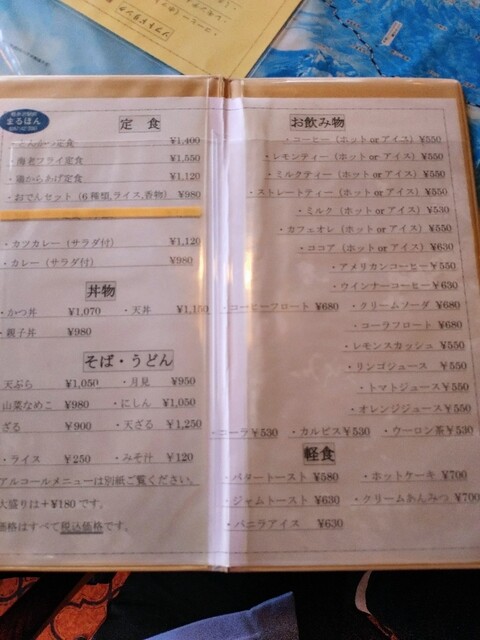 ソフトドリンク
まるほん
定食
・とんかつ定食 ¥1,400
・海老フライ定食 ¥1,550
・鶏からあげ定食 ¥1,120
・おでんセット（6種類,ライス,香物） ¥980
・カツカレー（サラダ付） ¥1,120
・カレー（サラダ付） ¥980
丼物
・かつ丼 ¥1,070 ・天丼 ¥1,150
・親子丼 ¥980
そば・うどん
天ぷら ¥1,050 ・月見 ¥950
山菜なめこ ¥980 ・にしん ¥1,050
ざる ¥900 ・天ざる ¥1,250
・ライス ¥250 ・みそ汁 ¥120
アルコールメニューは別紙ご覧ください。
大盛りは＋¥180です。
価格はすべて税込価格です。
お飲み物
・コーヒー（ホット or アイス） ¥550
・レモンティー（ホット or アイス） ¥550
・ミルクティー（ホット or アイス） ¥550
・ストレートティー（ホット or アイス） ¥550
・ミルク（ホット or アイス） ¥530
・カフェオレ（ホット or アイス） ¥550
・ココア（ホット or アイス） ¥630
・アメリカンコーヒー ¥550
・ウインナーコーヒー ¥630
・コーヒーフロート ¥680 ・クリームソーダ ¥680
・コーラフロート ¥680
・レモンスカッシュ ¥550
・リンゴジュース ¥550
・トマトジュース ¥550
・オレンジジュース ¥550
・コーラ ¥530 ・カルピス ¥530 ・ウーロン茶 ¥530
軽食
・バタートースト ¥580 ・ホットケーキ ¥700
・ジャムトースト ¥630 ・クリームあんみつ ¥700
・バニラアイス ¥630